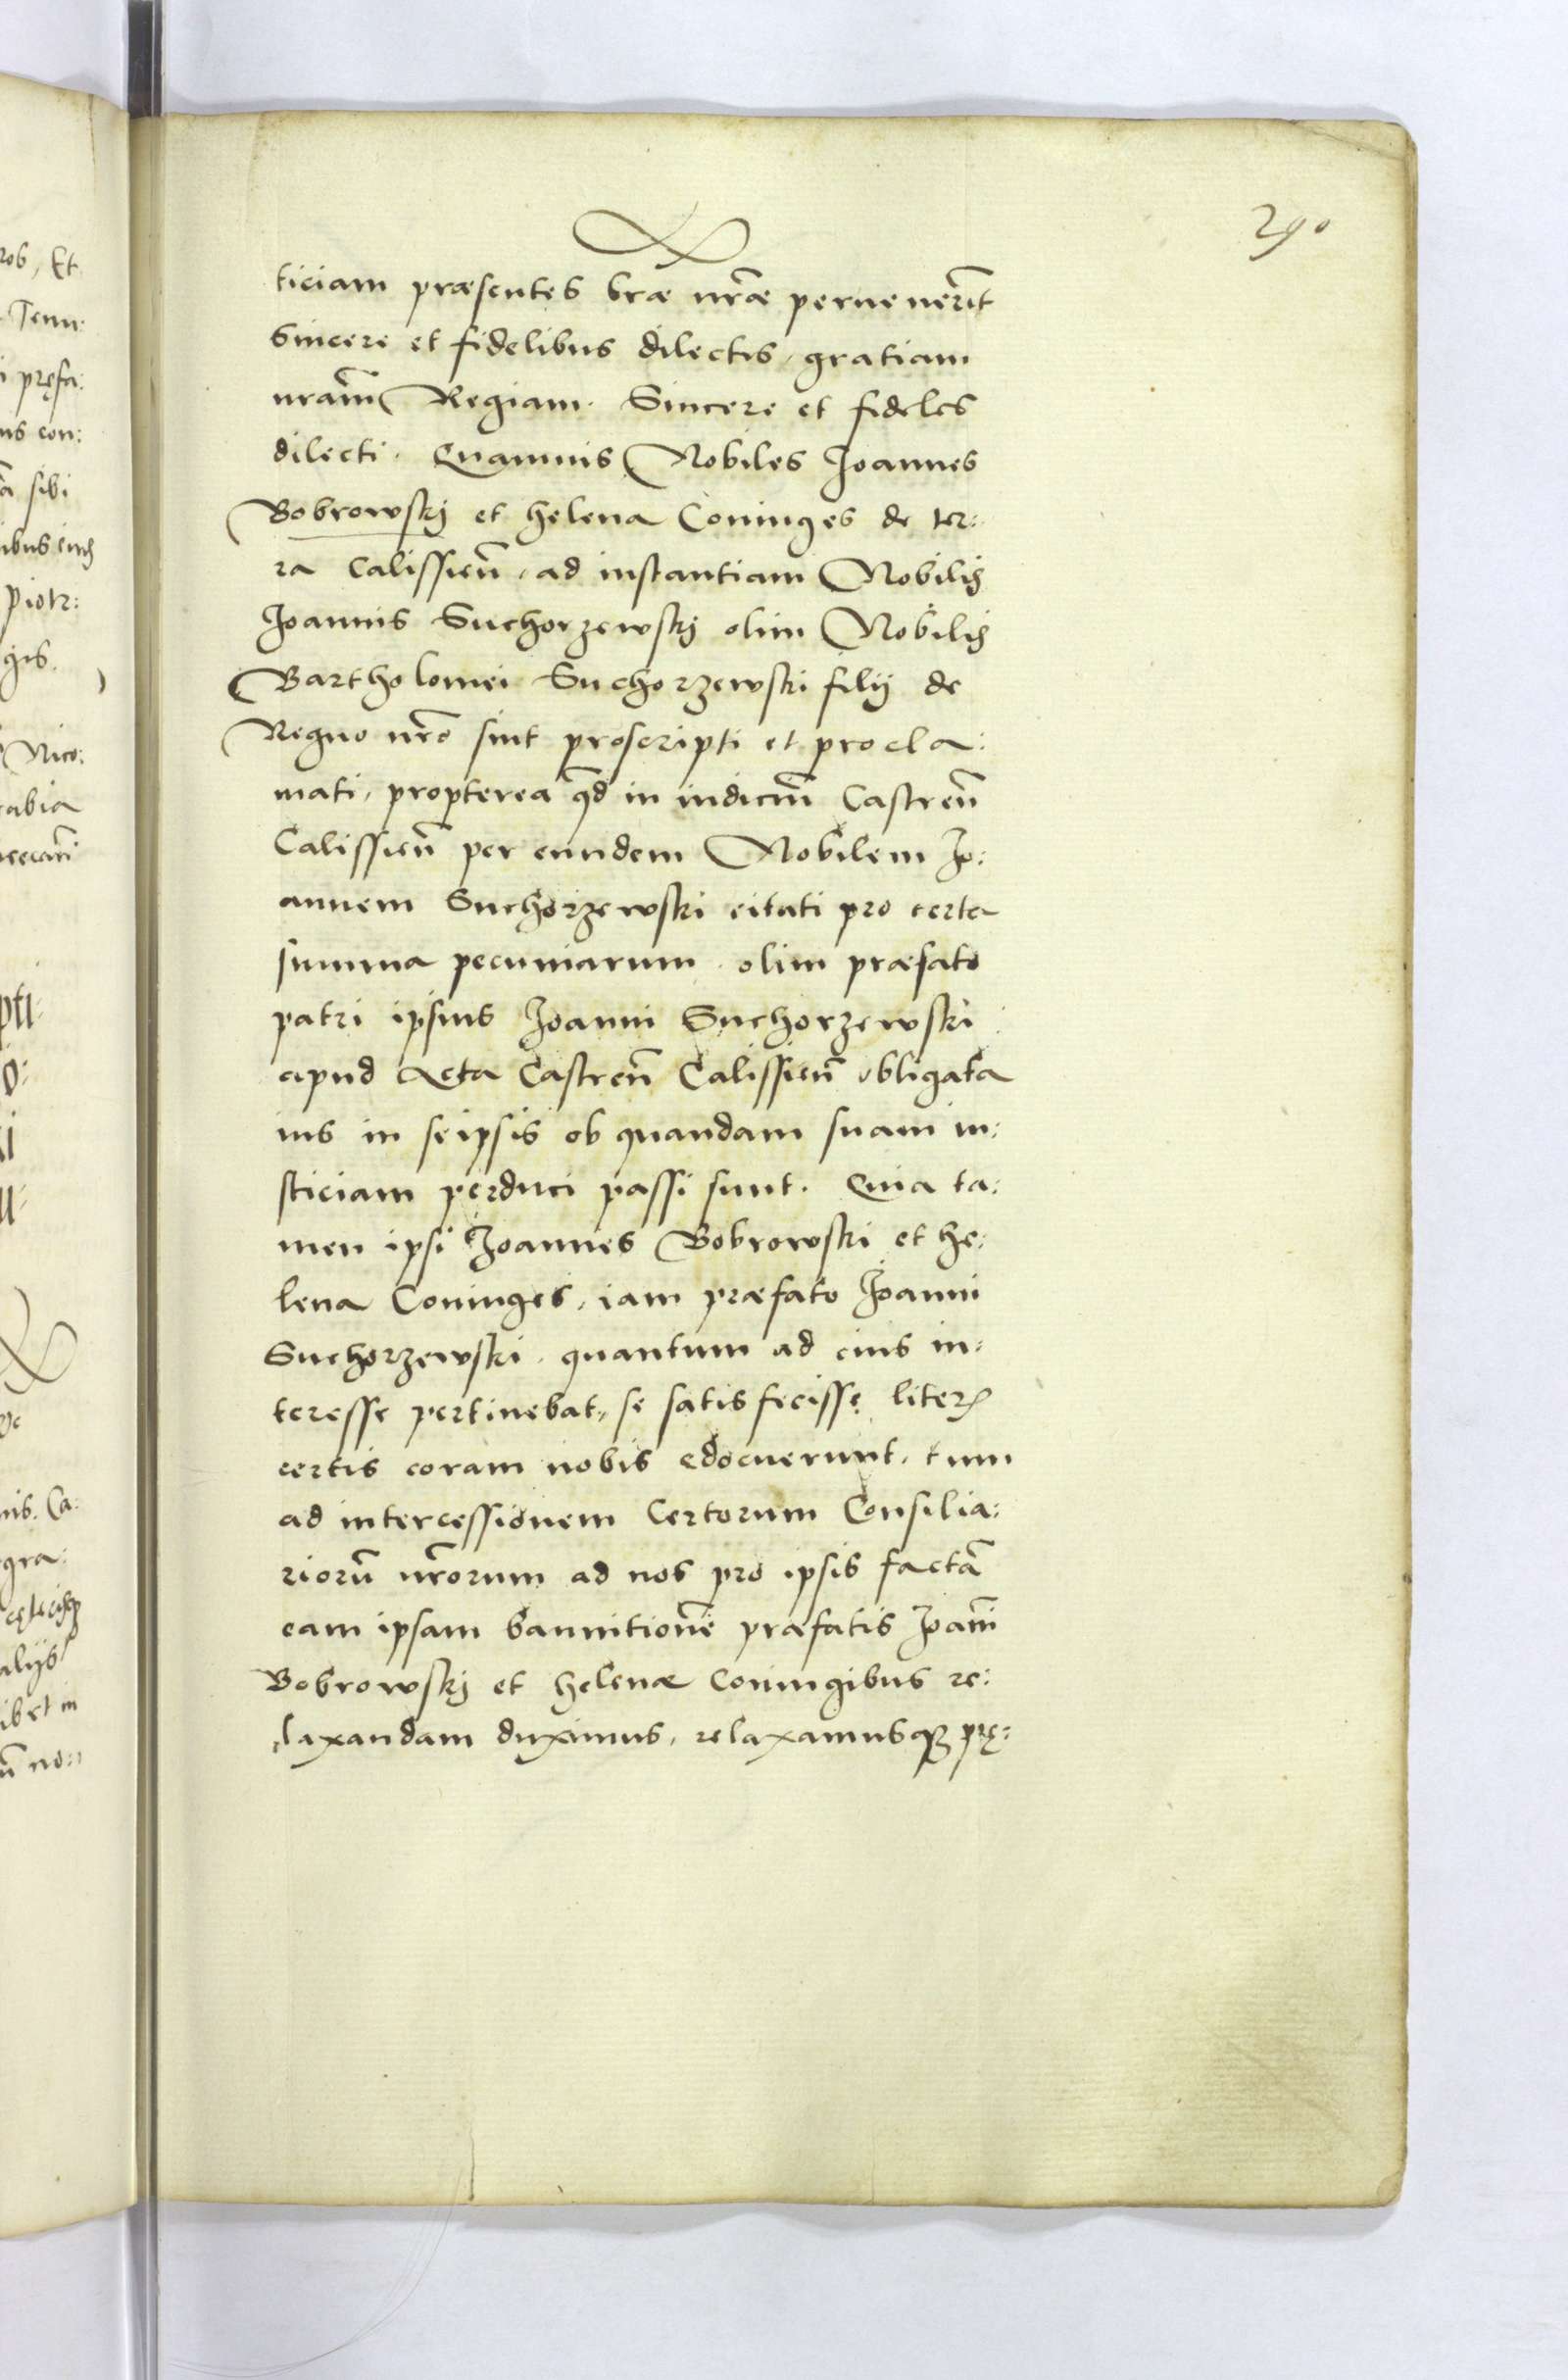 290
ticiam præsentes lræ nr̃æ peruenerĩt
Sincere et fidelibus dilectis, gratiam
nrãm Regiam. Sincere et fideles
dilecti. Quamuis Nobiles Joannes
Bobrowskij et Helena Coniuges de ter:
ra Calissieñ, ad instantiam Nobilis
Joannis Suchorzewskij olim Nobilis
Bartholomei Suchorzewski filij de
Regno nr̃o sint proscripti et procla:
mati, propterea qd̃ in iudiciũ Castreñ
Calissieñ per eundem Nobilem Jo:
annem Suchorzewski citati pro certa
summa pecuniarum olim præfato
patri ipsius Joanni Suchorzewski
apud Acta Castreñ Calissieñ obligata
ius in seipsis ob quandam suam in:
sticiam perduci passi sunt. Quia ta:
men ipsi Joannes Bobrowski et he:
lena Coniuges, iam præfato Joanni
Suchorzewski quantum ad eius in:
teresse pertinebat, se satisfecisse literis
certis coram nobis edocuerunt, tum
ad intercessionem Certorum Consilia:
riorũ nr̃orum ad nos pro ipsis factã
eam ipsam bannitionẽ præfatis Joañi
Bobrowskij et Helenæ Coniugibus re:
laxandam duximus, relaxamusqz prę:
rob, Et
Tenu:
i pręfa:
ns con:
ã sibi
Piotr:
gis.
Nico:
nis. Ca:
gra:
alijs
ibet in
ũ no: